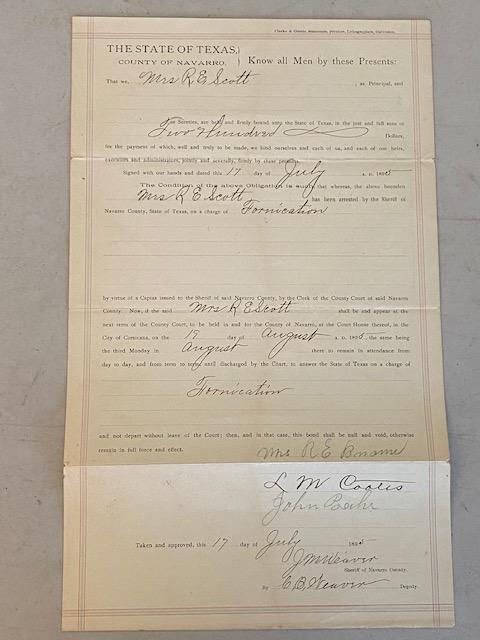 Clarke & Courts, Stationers, Printers, Lithographers, Galveston.
THE STATE OF TEXAS,
COUNTY OF NAVARRO.
Know all Men by these Presents:
That we, Mrs R. E. Scott, as Principal, and
as Sureties, are held and firmly bound unto the State of Texas, in the just and full sum of
Two Hundred Dollars,
for the payment of which, well and truly to be made, we bind ourselves and each of us, and each of our heirs,
executors and administrators, jointly and severally, firmly by these presents.
Signed with our hands and dated this 17 day of July A. D. 1895
The Condition of the above Obligation is such, that whereas, the above bounden
Mrs R E Scott has been arrested by the Sheriff of
Navarro County, State of Texas, on a charge of Fornication
by virtue of a Capias issued to the Sheriff of said Navarro County, by the Clerk of the County Court of said Navarro
County. Now, if the said Mrs R E Scott shall be and appear at the
next term of the County Court, to be held in and for the County of Navarro, at the Court House thereof, in the
City of Corsicana, on the 19 day of August A. D. 1895, the same being
the third Monday in August there to remain in attendance from
day to day, and from term to term, until discharged by the Court, to answer the State of Texas on a charge of
Fornication
and not depart without leave of the Court; then, and in that case, this bond shall be null and void, otherwise
remain in full force and effect.
Mrs R E
L M
John
Taken and approved, this 17 day of July 1895
J M Weaver
Sheriff of Navarro County.
By E. B. Weaver Deputy.